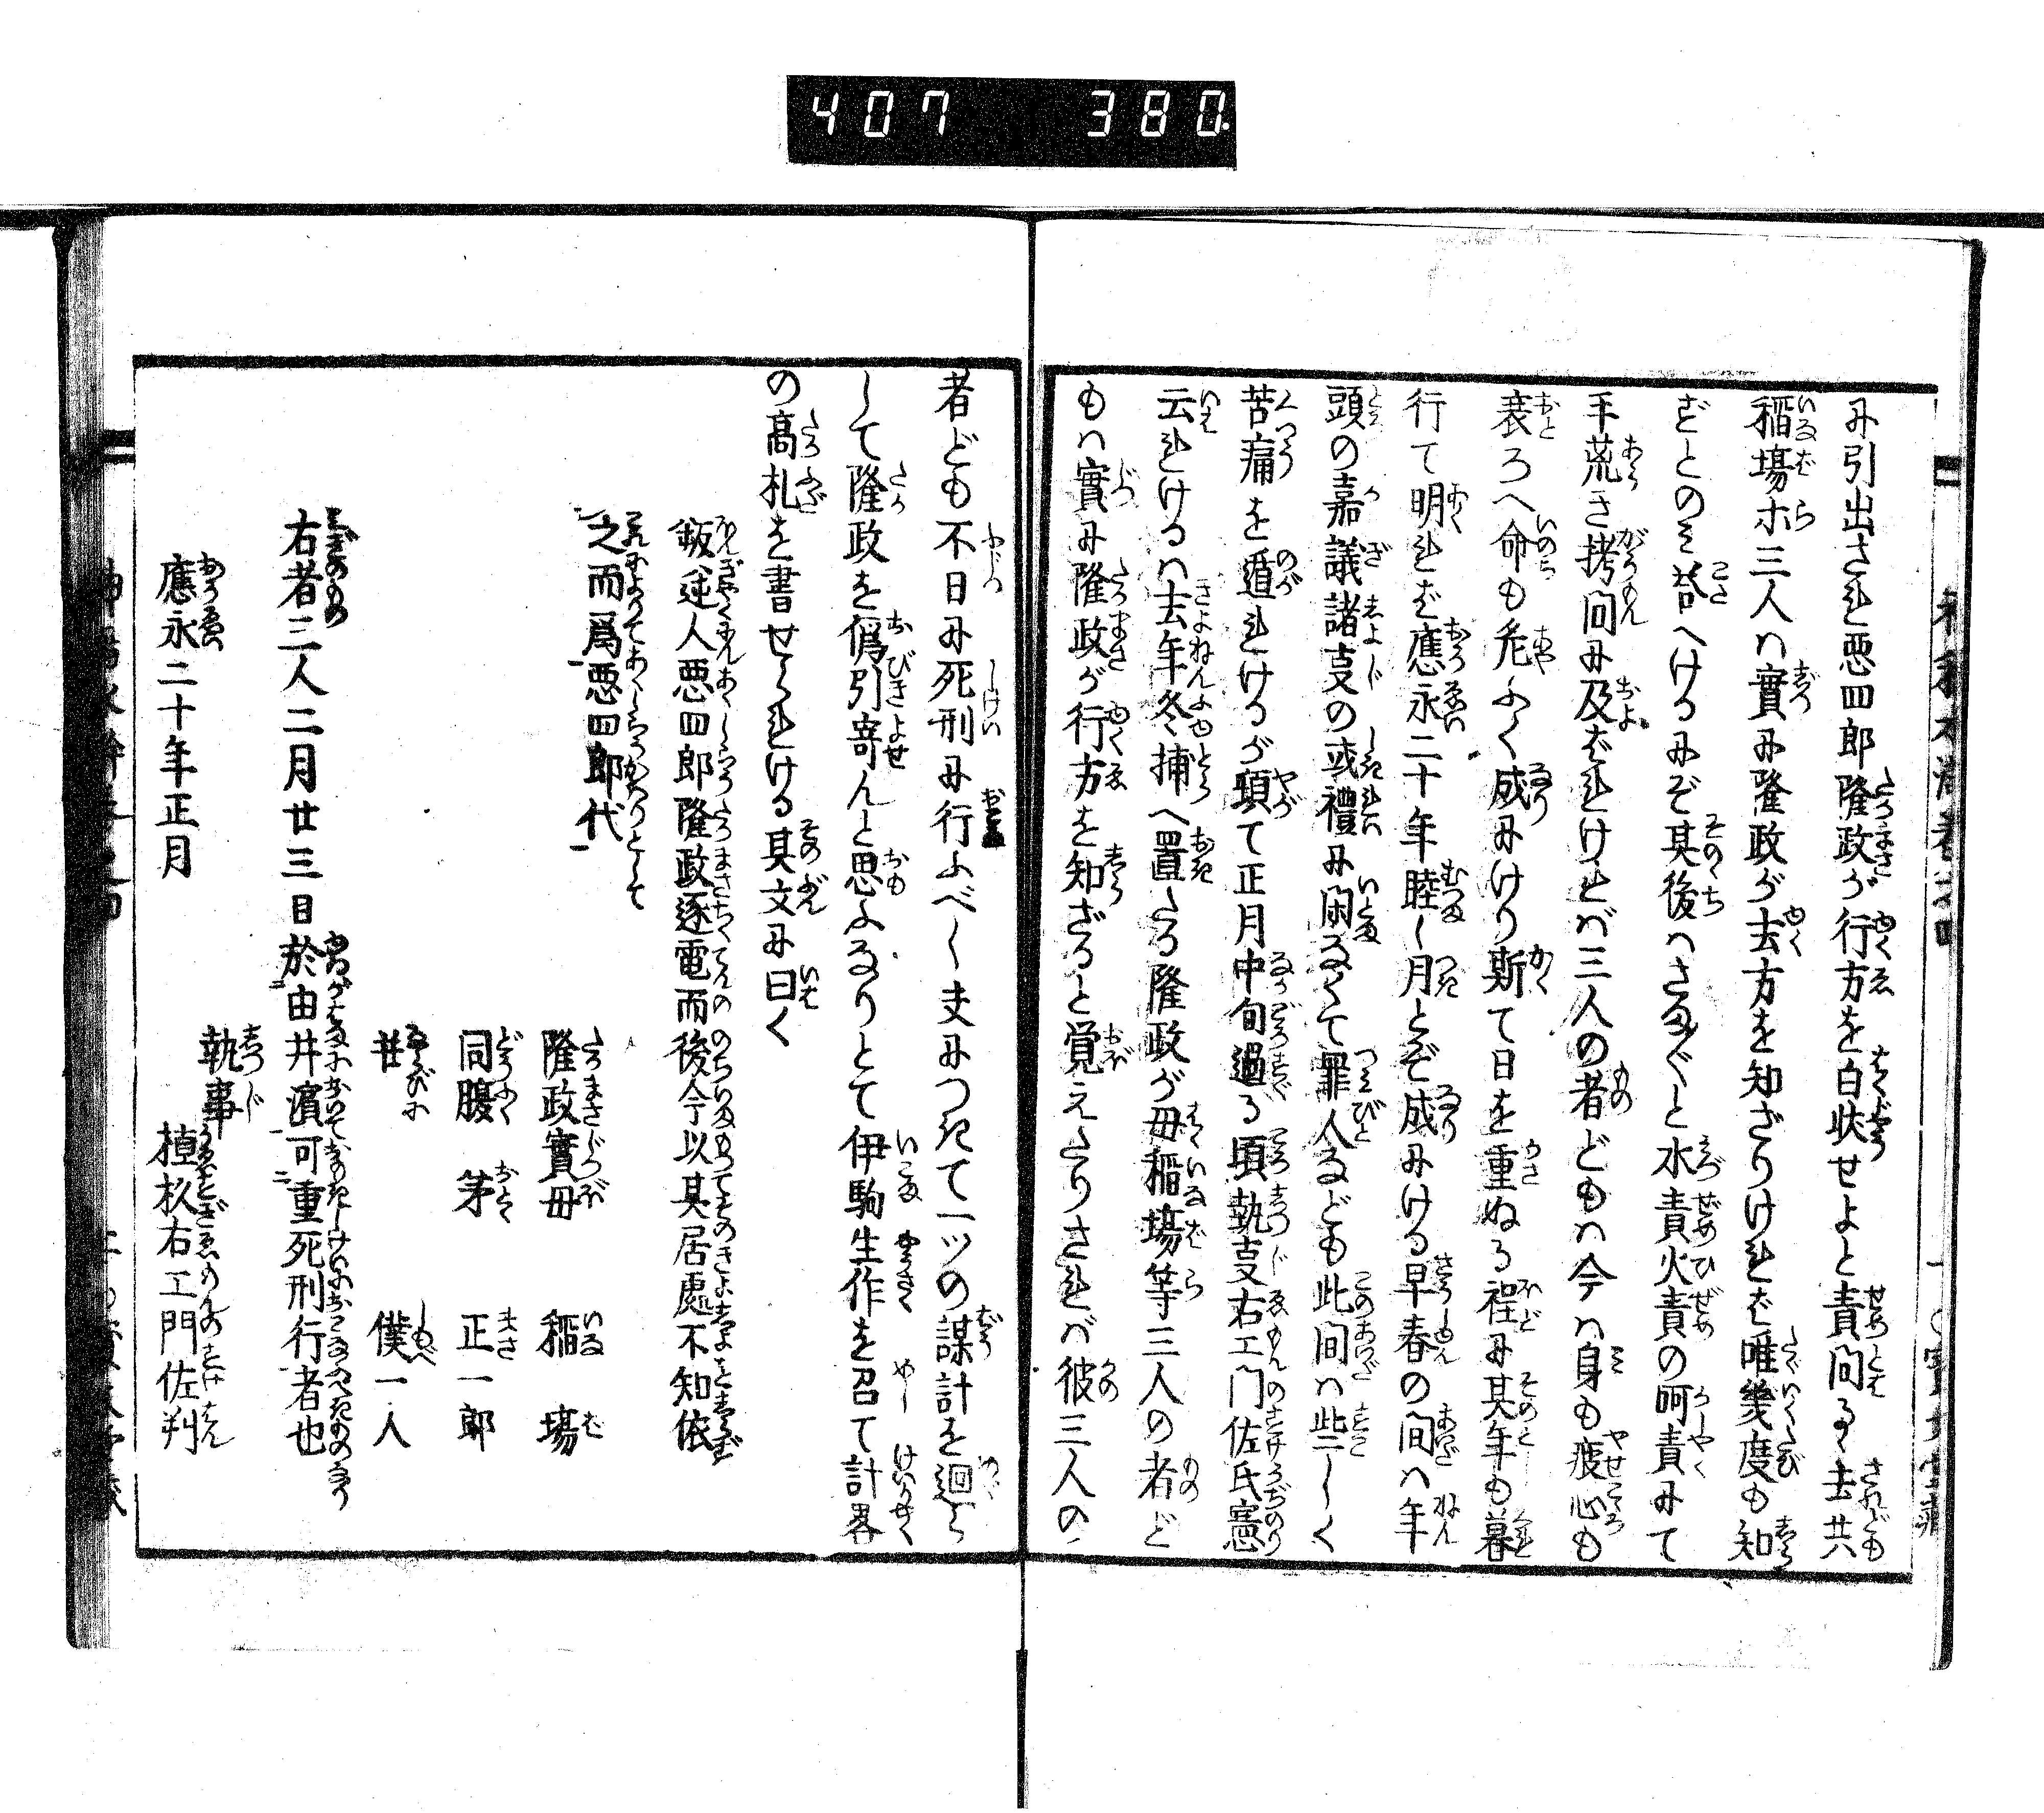 407 380
に引出され悪四郎隆政が行方を白状せよと責問るゝ去共
稲場ホ三人ハ實に隆政が去方を知ざりけれど唯幾度も知
ずとのミ答へけるにぞ其後ハさま〲と水責火責の呵責にて
手荒き拷問に及びけれバ三人の者どもハ今ハ身も疲心も
衰ろへ命も危ふく成にけり斯て日を重ぬる程に其年も暮
行て明れど應永二十年睦し月とぞ成にける早春の間ハ年
頭の嘉議諸支の或禮に閑なくて罪人なども此間ハ些しく
苦痛を遁れけるが頓て正月中旬過る頃執支右エ門佐氏憲
云れけるハ去年冬捕へ置たる隆政が母稲場等三人の者ど
もハ實に隆政が行方を知ざると覚えたりされバ彼三人の
者ども不日に死刑に行ふべし夫につきて一ツの謀計を廻ら
して隆政を偽引寄んと思ふなりとて伊駒生作を召て計畧
の髙札を書せられける其文に曰く
叛逆人悪四郎隆政逐電而後今以其居處不知依
之而爲悪四郎代
隆政實母 稲場
同腹 茅 正一郎
並 僕一人
右者三人二月廿三日於由井濱可重死刑行者也
執事
應永二十年正月 植杉右エ門佐判